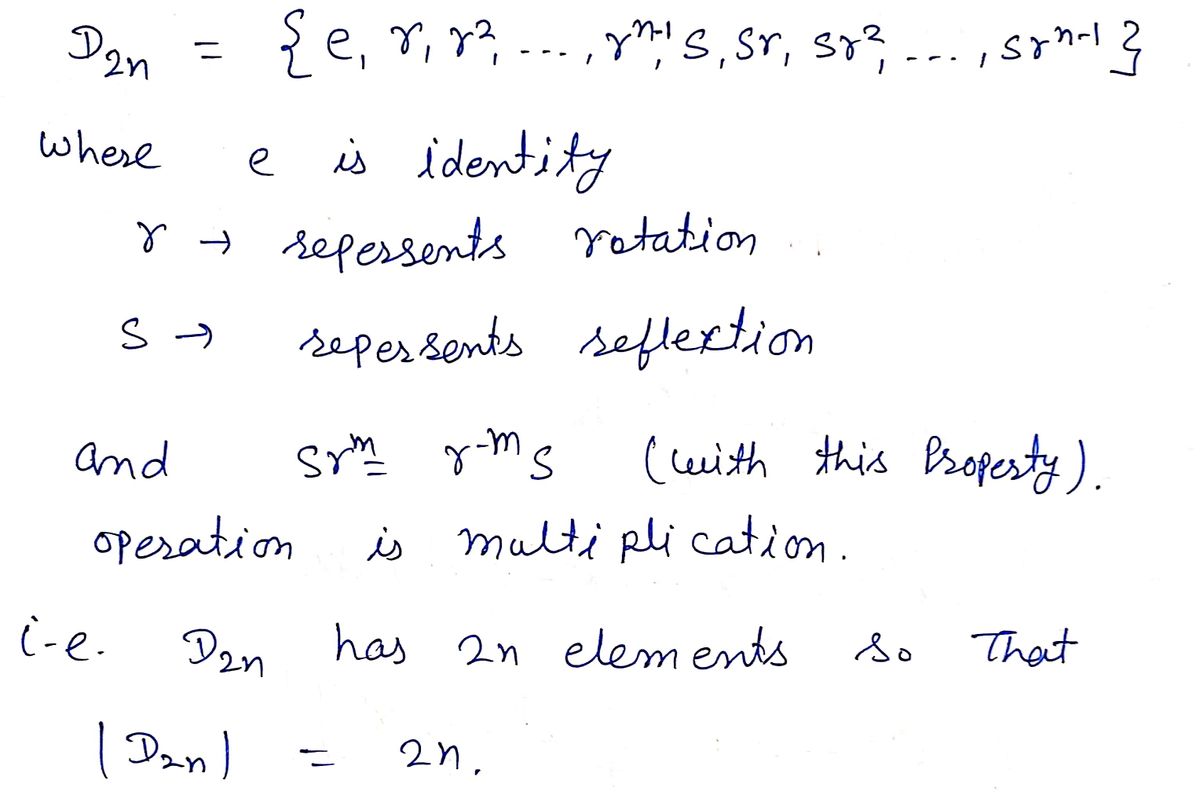 D₂ₙ = { e, r, r², ---, rⁿ⁻¹, s, sr, sr², ---, srⁿ⁻¹ }
where e is identity
r → repersents rotation
s → repersents reflextion
and srᵐ = r⁻ᵐ s (with this Property).
operation is multiplication.
i-e. D₂ₙ has 2n elements so That
|D₂ₙ| = 2n.